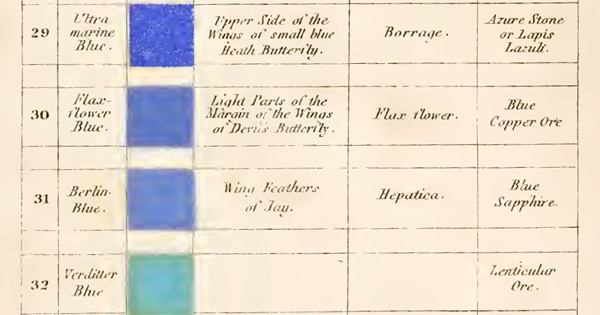 29
Ultra
marine
Blue.
Upper Side of the
Wings of small blue
Heath Butterfly.
Borrage.
Azure Stone
or Lapis
Lazuli.
30
Flax-
flower
Blue.
Light Parts of the
Margin of the Wings
of Devil's Butterfly.
Flax flower.
Blue
Copper Ore
31
Berlin
Blue.
Wing Feathers
of Jay.
Hepatica.
Blue
Sapphire.
32
Verditter
Blue
Lenticular
Ore.